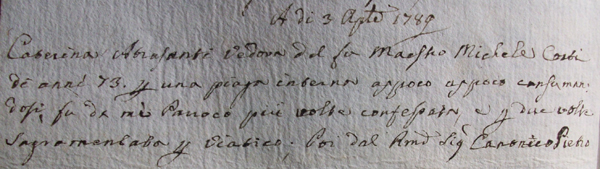 A di 3 Aple 1789
Caterina Vedova del fu Maestro Michele
di anni 73. p una piaga interna appoco appoco consuman-
dosi, fu da mè Parroco più volte confessata, e p due volte
Sagramentata p Viatico. Poi dal Rmd Sigr Canonico Pietro